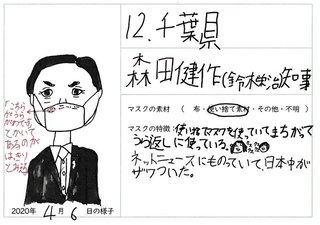 12. 千葉県
森田健作(鈴木栄治)知事
マスクの素材 ( 布・使い捨て素材・その他・不明 )
マスクの特徴: 使いすてマスクを使っていてまちがって
うら返しに使っている。
ネットニュースにものっていて、日本中が
ザワついた。
「こちら
がうら
がわです」
とかいて
あるのが
はっきり
とわかる
2020年 4月 6日の様子